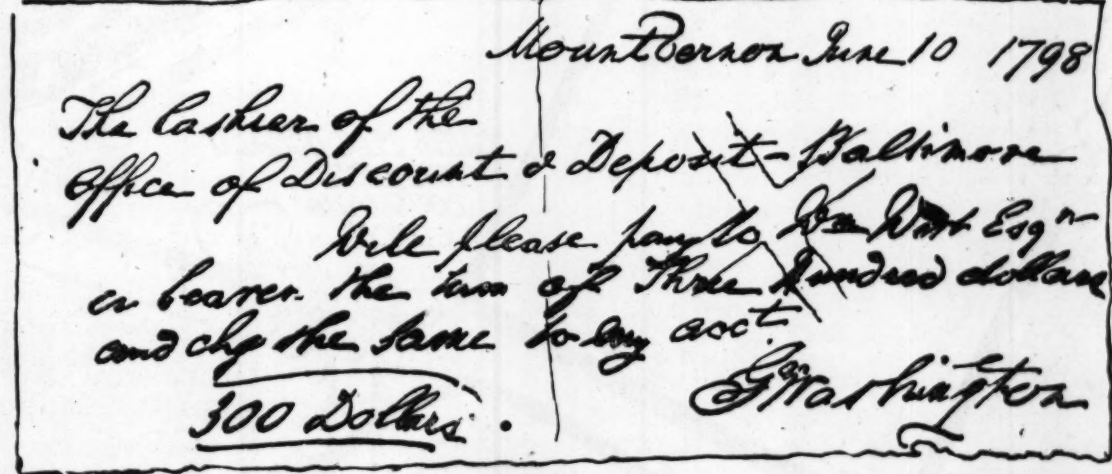 Mount Vernon June 10 1798
The Cashier of the
Office of Discount & Deposit - Baltimore
Will please pay to Wm Esqr
or bearer the sum of Three Hundred dollars
and chg the same to my acct.
GWashington
300 Dollars.